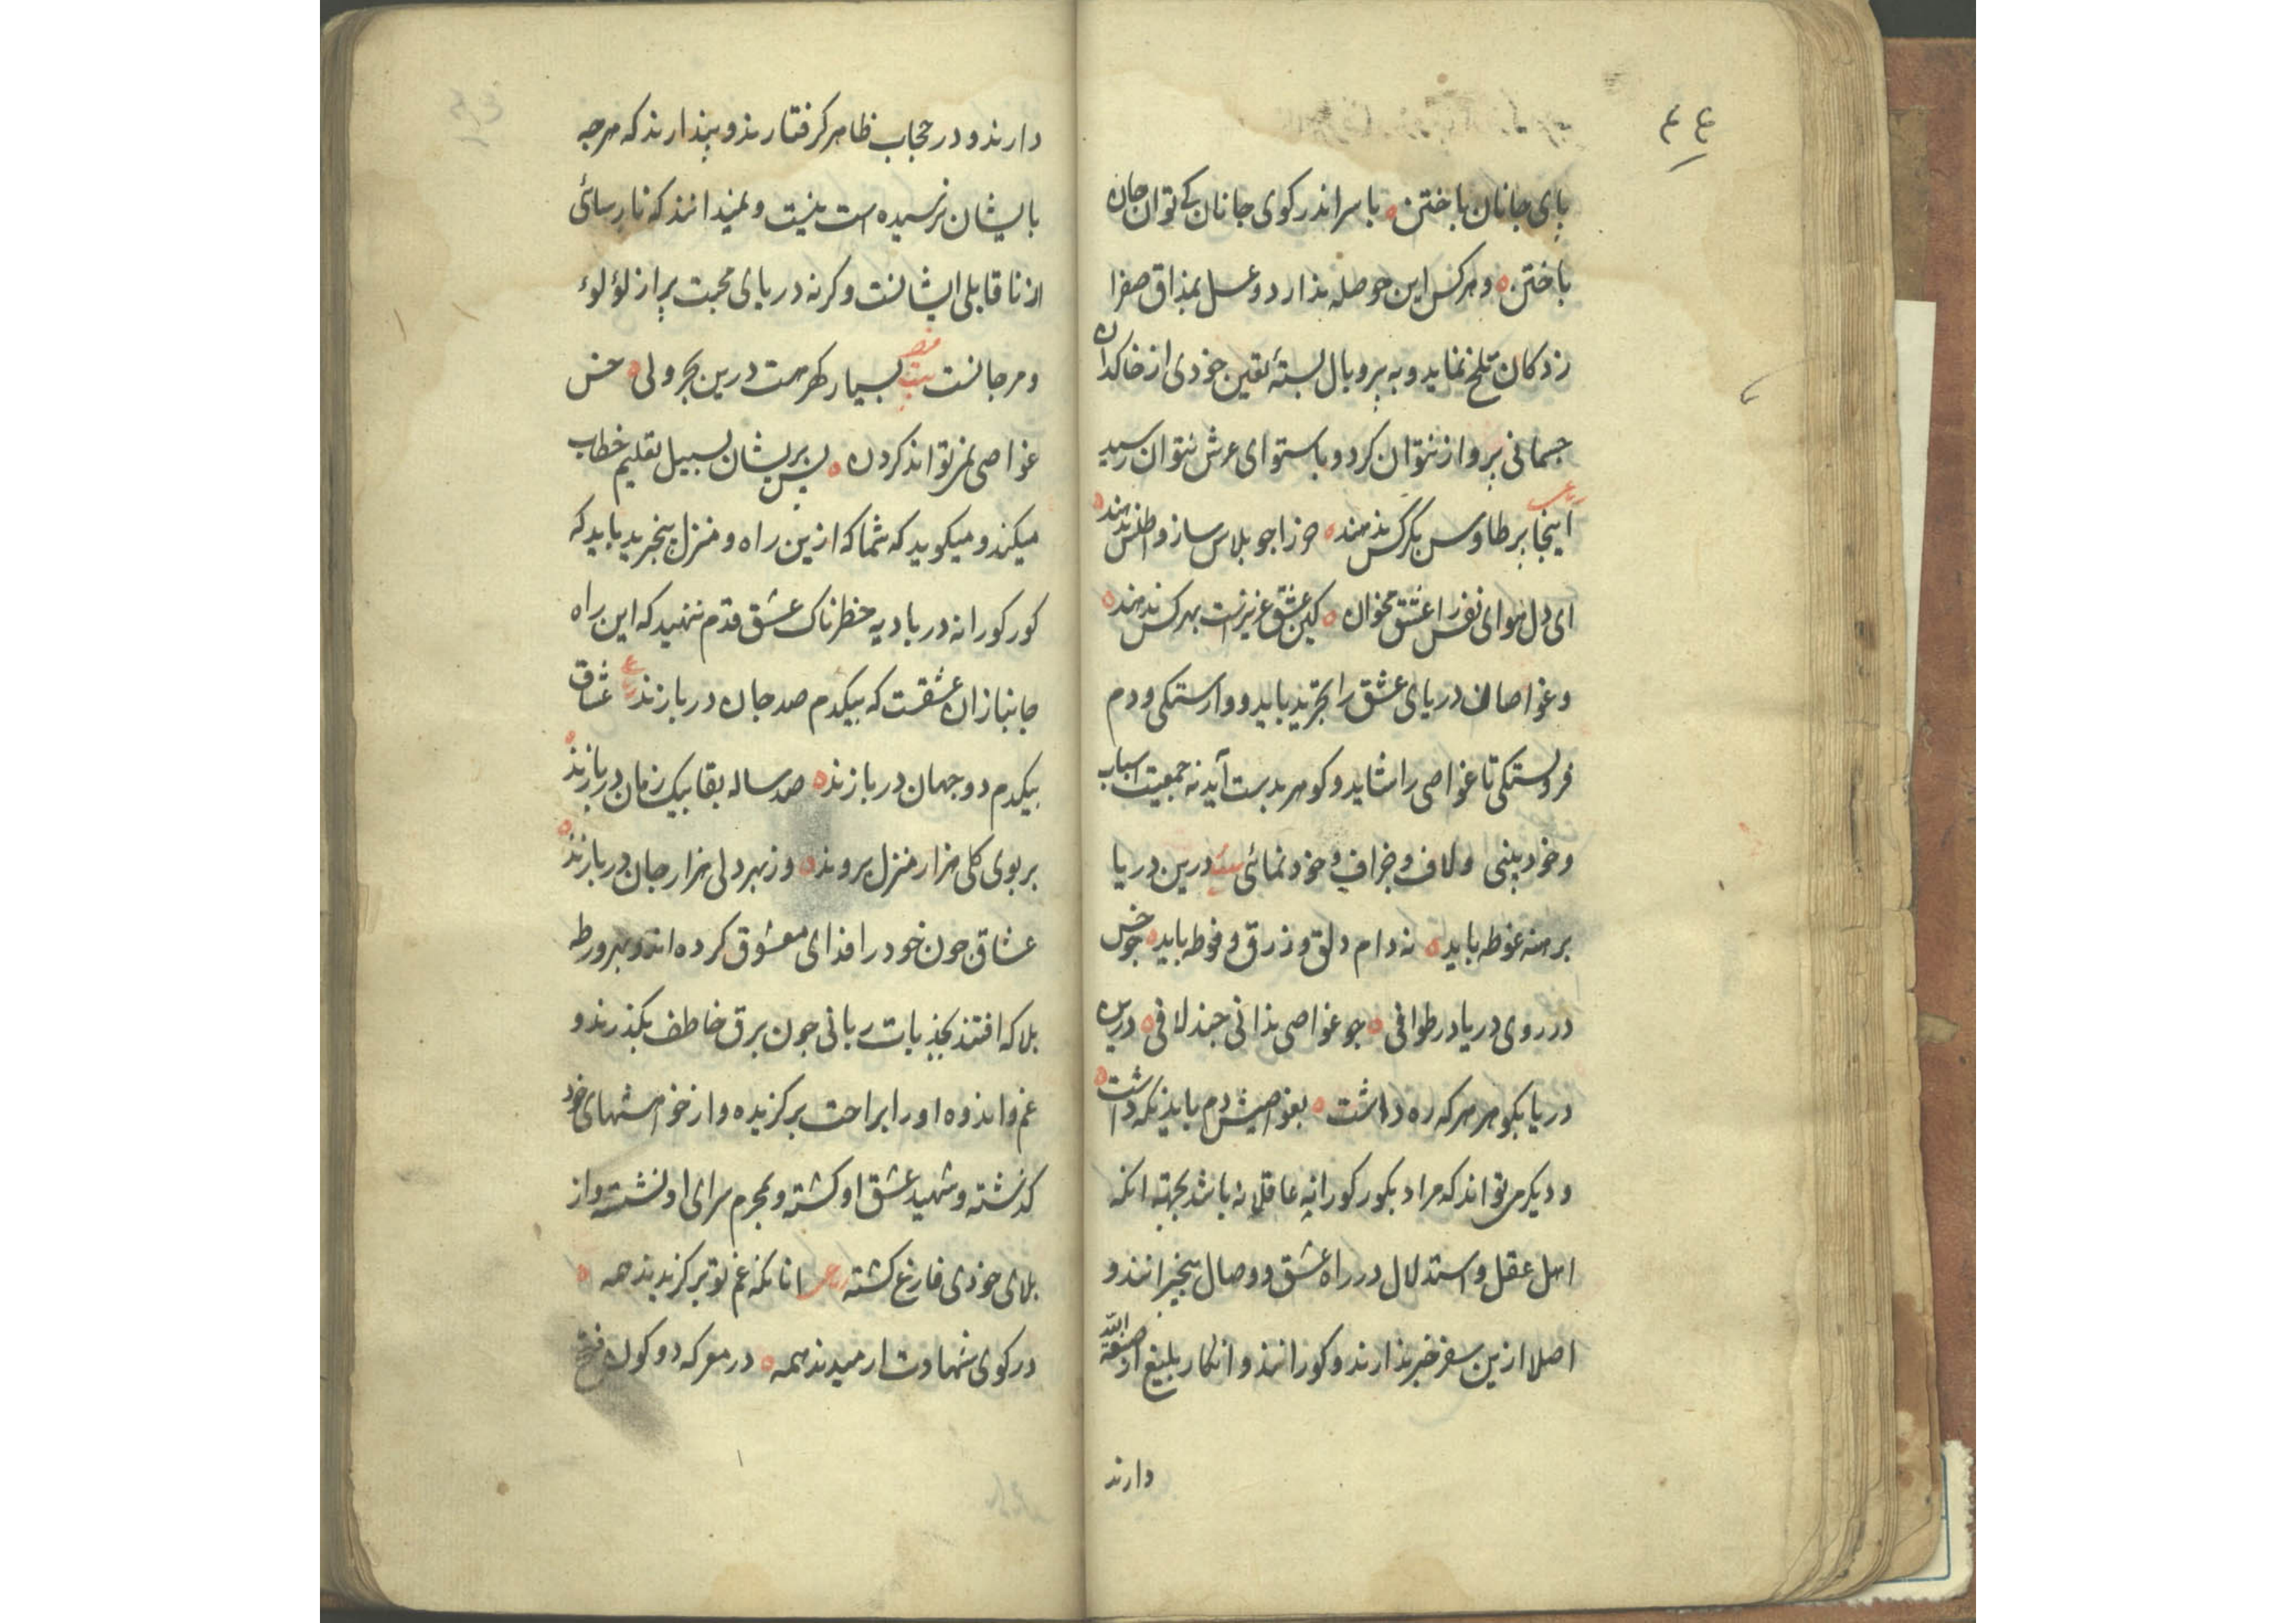 ٤٤
بپای جانان باختن ٥ با سر اندر کوی جانان کے توان جان
باختن ٥ و هر کس این حوصله ندارد و عسل بمذاق صفرا
زدکان تلخ نماید و به پر و بال بستهٔ یقین خودی از خاکدان
جسمانی پرواز نتوان کرد و باستوای عرش نتوان رسید
رباعی اینجا پر طاوس بکرکس ندهند ٥ خر را جو پلاس ساز و اطلس ندهند ٥
ای دل هوای نفس را عشق مخوان ٥ کین عشق عزیزست بهر کس ندهند ٥
و غواصان دریای عشق را تجرید باید و وارستکی و دم
فروبستکی تا غواصی را شاید و کوهر بدست آید نه جمعیت اسباب
و خودبینی و لاف و خزاف و خودنمائی بیت درین دریا
برهنه غوطه باید ٥ نه دام دلق و زرق و فوطه باید ٥ جو خس
در روی دریا در طوافی ٥ جو غواصی ندانی جند لافی ٥ درین
دریا بکوهر هر که ره داشت ٥ بغواصیش دم باید نکه داشت ٥
و دیکر می تواند که مراد بکور کورانه عاقلانه باشد بجهته انکه
اهل عقل و استدلال در راه عشق و وصال بیخبرانند و
اصلا ازین سفر خبر ندارند و کورانند و انکار بلیغ از صنعة الله
دارند
دارند و در حجاب ظاهر کرفتارند و پندارند که هرجه
بایشان نرسیده است نیست و نمیدانند که نارسائی
از ناقابلی ایشانست وکرنه دریای محبت پر از لؤلوء
و مرجانست بیت بسیار کهر هست درین بحر ولی ٥ خس
غواصی نمی تواند کردن ٥ پس بریشان بسبیل تعلیم خطاب
میکند و میکوید که شما که ازین راه و منزل بیخبرید باید که
کور کورانه در بادیه خطرناک عشق قدم ننهید که این راه
جانبازان عشقست که بیکدم صد جان دربازند رباعی عشاق
بیکدم دو جهان دربازند ٥ صد ساله بقا بیک زمان دربازند ٥
بر بوی کلی هزار منزل بروند ٥ وز بهر دلی هزار جان دربازند ٥
عشاق جون خود را فدای معشوق کرده اند و بهر ورطه
بلا که افتند بجذبات ربانی جون برق خاطف بکذرند و
غم و اندوه او را براحت برکزیده و از خواهشهای خود
کذشته و شهید عشق او کشته و بحرم سرای او نشسته و از
بلای خودی فارغ کشته رباعی انانکه غم تو برکزیدند همه ٥
در کوی شهادت ارمیدند همه ٥ در معرکه دو کون فتح